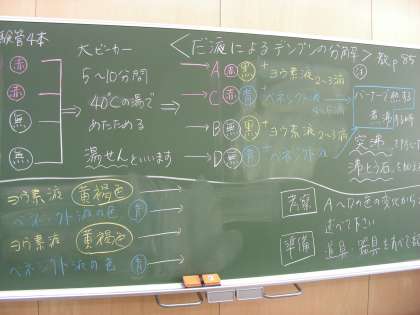 験管4本
<だ液によるデンプンの分解> 教p.85
大ビーカー
5〜10分間
40℃の湯で
あたためる
湯せんといいます
赤
赤
無
無
A 赤 黒 +ヨウ素液 2〜3滴
C 赤 青 +ベネジクト液
B 無 黒 +ヨウ素液 2〜3滴
D 無 青 +ベネジクト液
突沸
沸とう石を
ヨウ素液 黄褐色
ベネジクト液の色 青
ヨウ素液 黄褐色
ベネジクト液の色 青
考察 A〜Dの色の変化から
述べて下さい
準備 道具・器具を